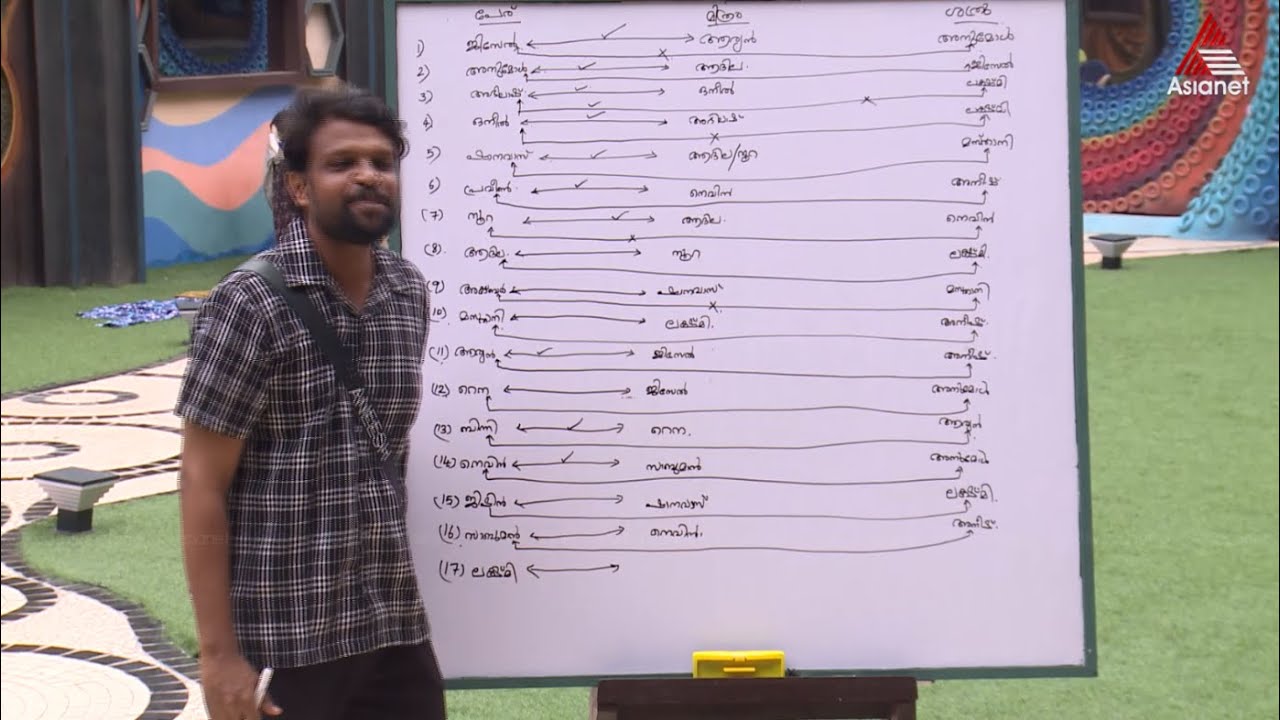 പേര് മിത്രം ശത്രു
Asianet
1) ജിസേൽ ആര്യൻ അനുമോൾ
2) അനുമോൾ ആദില ജിസേൽ
3) അഭിലാഷ് ഒനീൽ ലക്ഷ്മി
4) ഒനീൽ അഭിലാഷ് ലക്ഷ്മി
5) ഷാനവാസ് ആദില/നൂറ മസ്താനി
6) പ്രവീൺ നെവിൻ അനീഷ്
(7) നൂറ ആദില നെവിൻ
(8) ആദില നൂറ ലക്ഷ്മി
(9) അക്ബർ ഷാനവാസ് മസ്താനി
10) മസ്താനി ലക്ഷ്മി. അനീഷ്
(11) ആര്യൻ ജിസേൽ അനീഷ്
(12) റെന ജിസേൽ അനുമോൾ
(13) ബിന്നി റെന. ആര്യൻ
(14) നെവിൻ സാബുമാൻ അനുമോൾ
(15) ജിഷിൻ ഷാനവാസ് ലക്ഷ്മി.
(16) സാബുമാൻ നെവിൻ. അനീഷ്.
(17) ലക്ഷ്മി